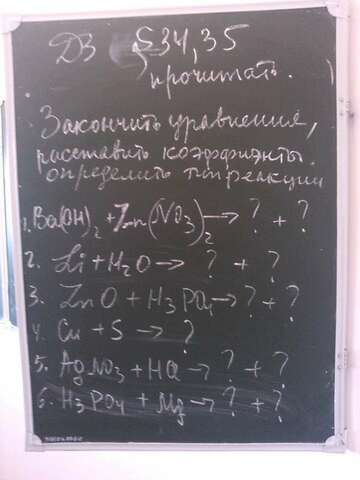 ДЗ § 34, 35
прочитать.
Закончить уравнения,
расставить коэффиенты.
определить тип реакции
1. Ba(OH)₂ + Zn(NO₃)₂ → ? + ?
2. Li + H₂O → ? + ?
3. ZnO + H₃PO₄ → ? + ?
4. Cu + S → ?
5. AgNO₃ + HCl → ? + ?
6. H₃PO₄ + Mg → ? + ?